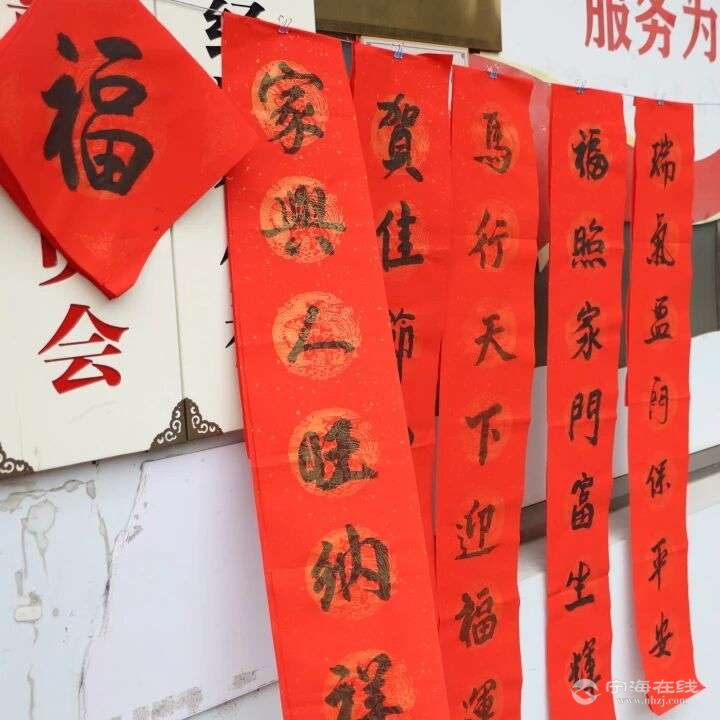 福
家興人旺納祥
賀佳節
馬行天下迎福運
福照家門富生輝
瑞氣盈門保平安
服务为
会
宁海在线
www.nhzj.com